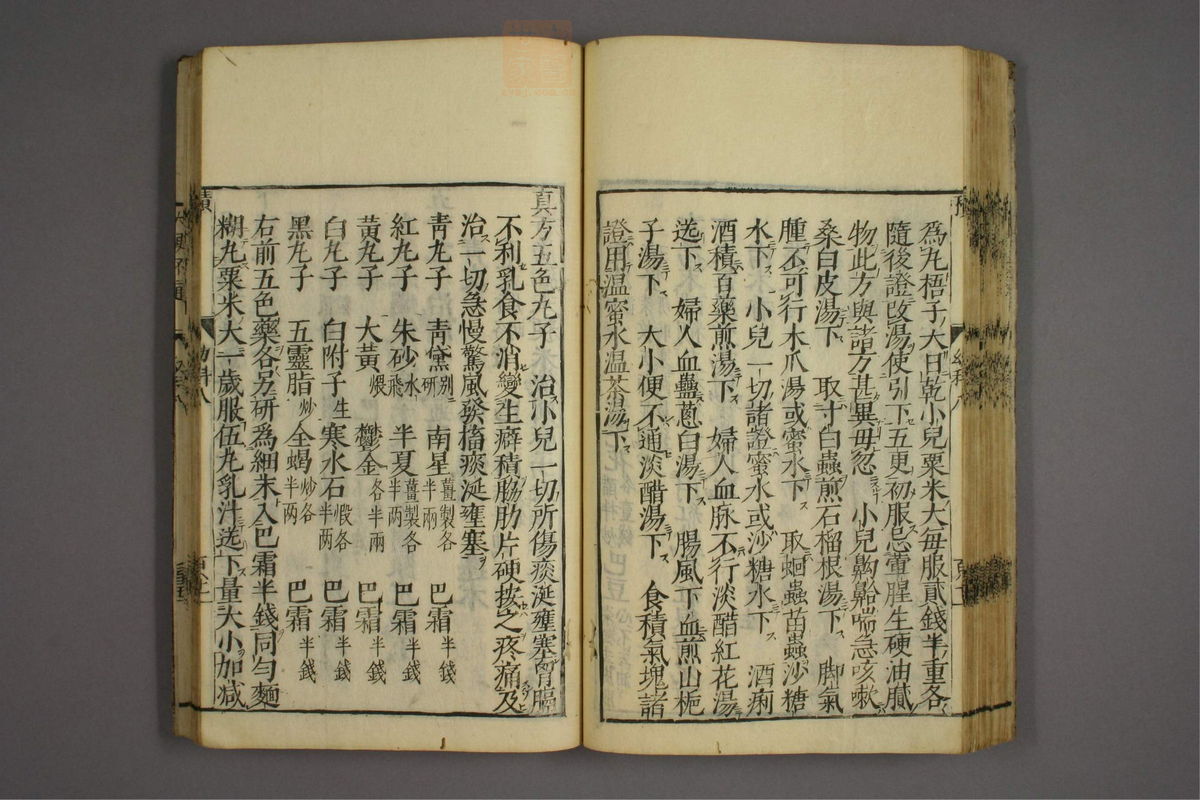 爲丸梧子大日乾小兒粟米大毎服貳錢半重各
隨後證改湯使引下五更初服忌葷腥生硬油膩
物此方與諸方甚異毋忽 小兒齁䶎喘急咳嗽
桑白皮湯下 取寸白蟲煎石榴根湯下 脚氣
腫不可行木爪湯或蜜水下 取蛔蟲苗蟲沙糖
水下 小兒一切諸證蜜水或沙糖水下 酒痢
酒積百藥煎湯下 婦人血脉不行淡醋紅花湯
送下 婦人血蠱蔥白湯下 腸風下血煎山梔
子湯下 大小便不通淡醋湯下 食積氣塊諸
證用温蜜水温茶湯下
真方五色丸子 治小兒一切所傷痰涎壅塞胷膈
不利乳食不消變生癖積脇肋片硬按之疼痛及
治一切急慢驚風發搐痰涎壅塞
青丸子 青黛别研 南星薑製各半兩 巴霜半錢
紅丸子 朱砂水飛 半夏薑製各半兩 巴霜半錢
黄丸子 大黄煨 鬱金各半兩 巴霜半錢
白丸子 白附子生 寒水石煅各半兩 巴霜半錢
黑丸子 五靈脂炒 全蝎炒各半兩 巴霜半錢
右前五色藥各另研爲細末入巴霜半錢同勻麵
糊丸粟米大一歲服伍丸乳汁送下量大小加减